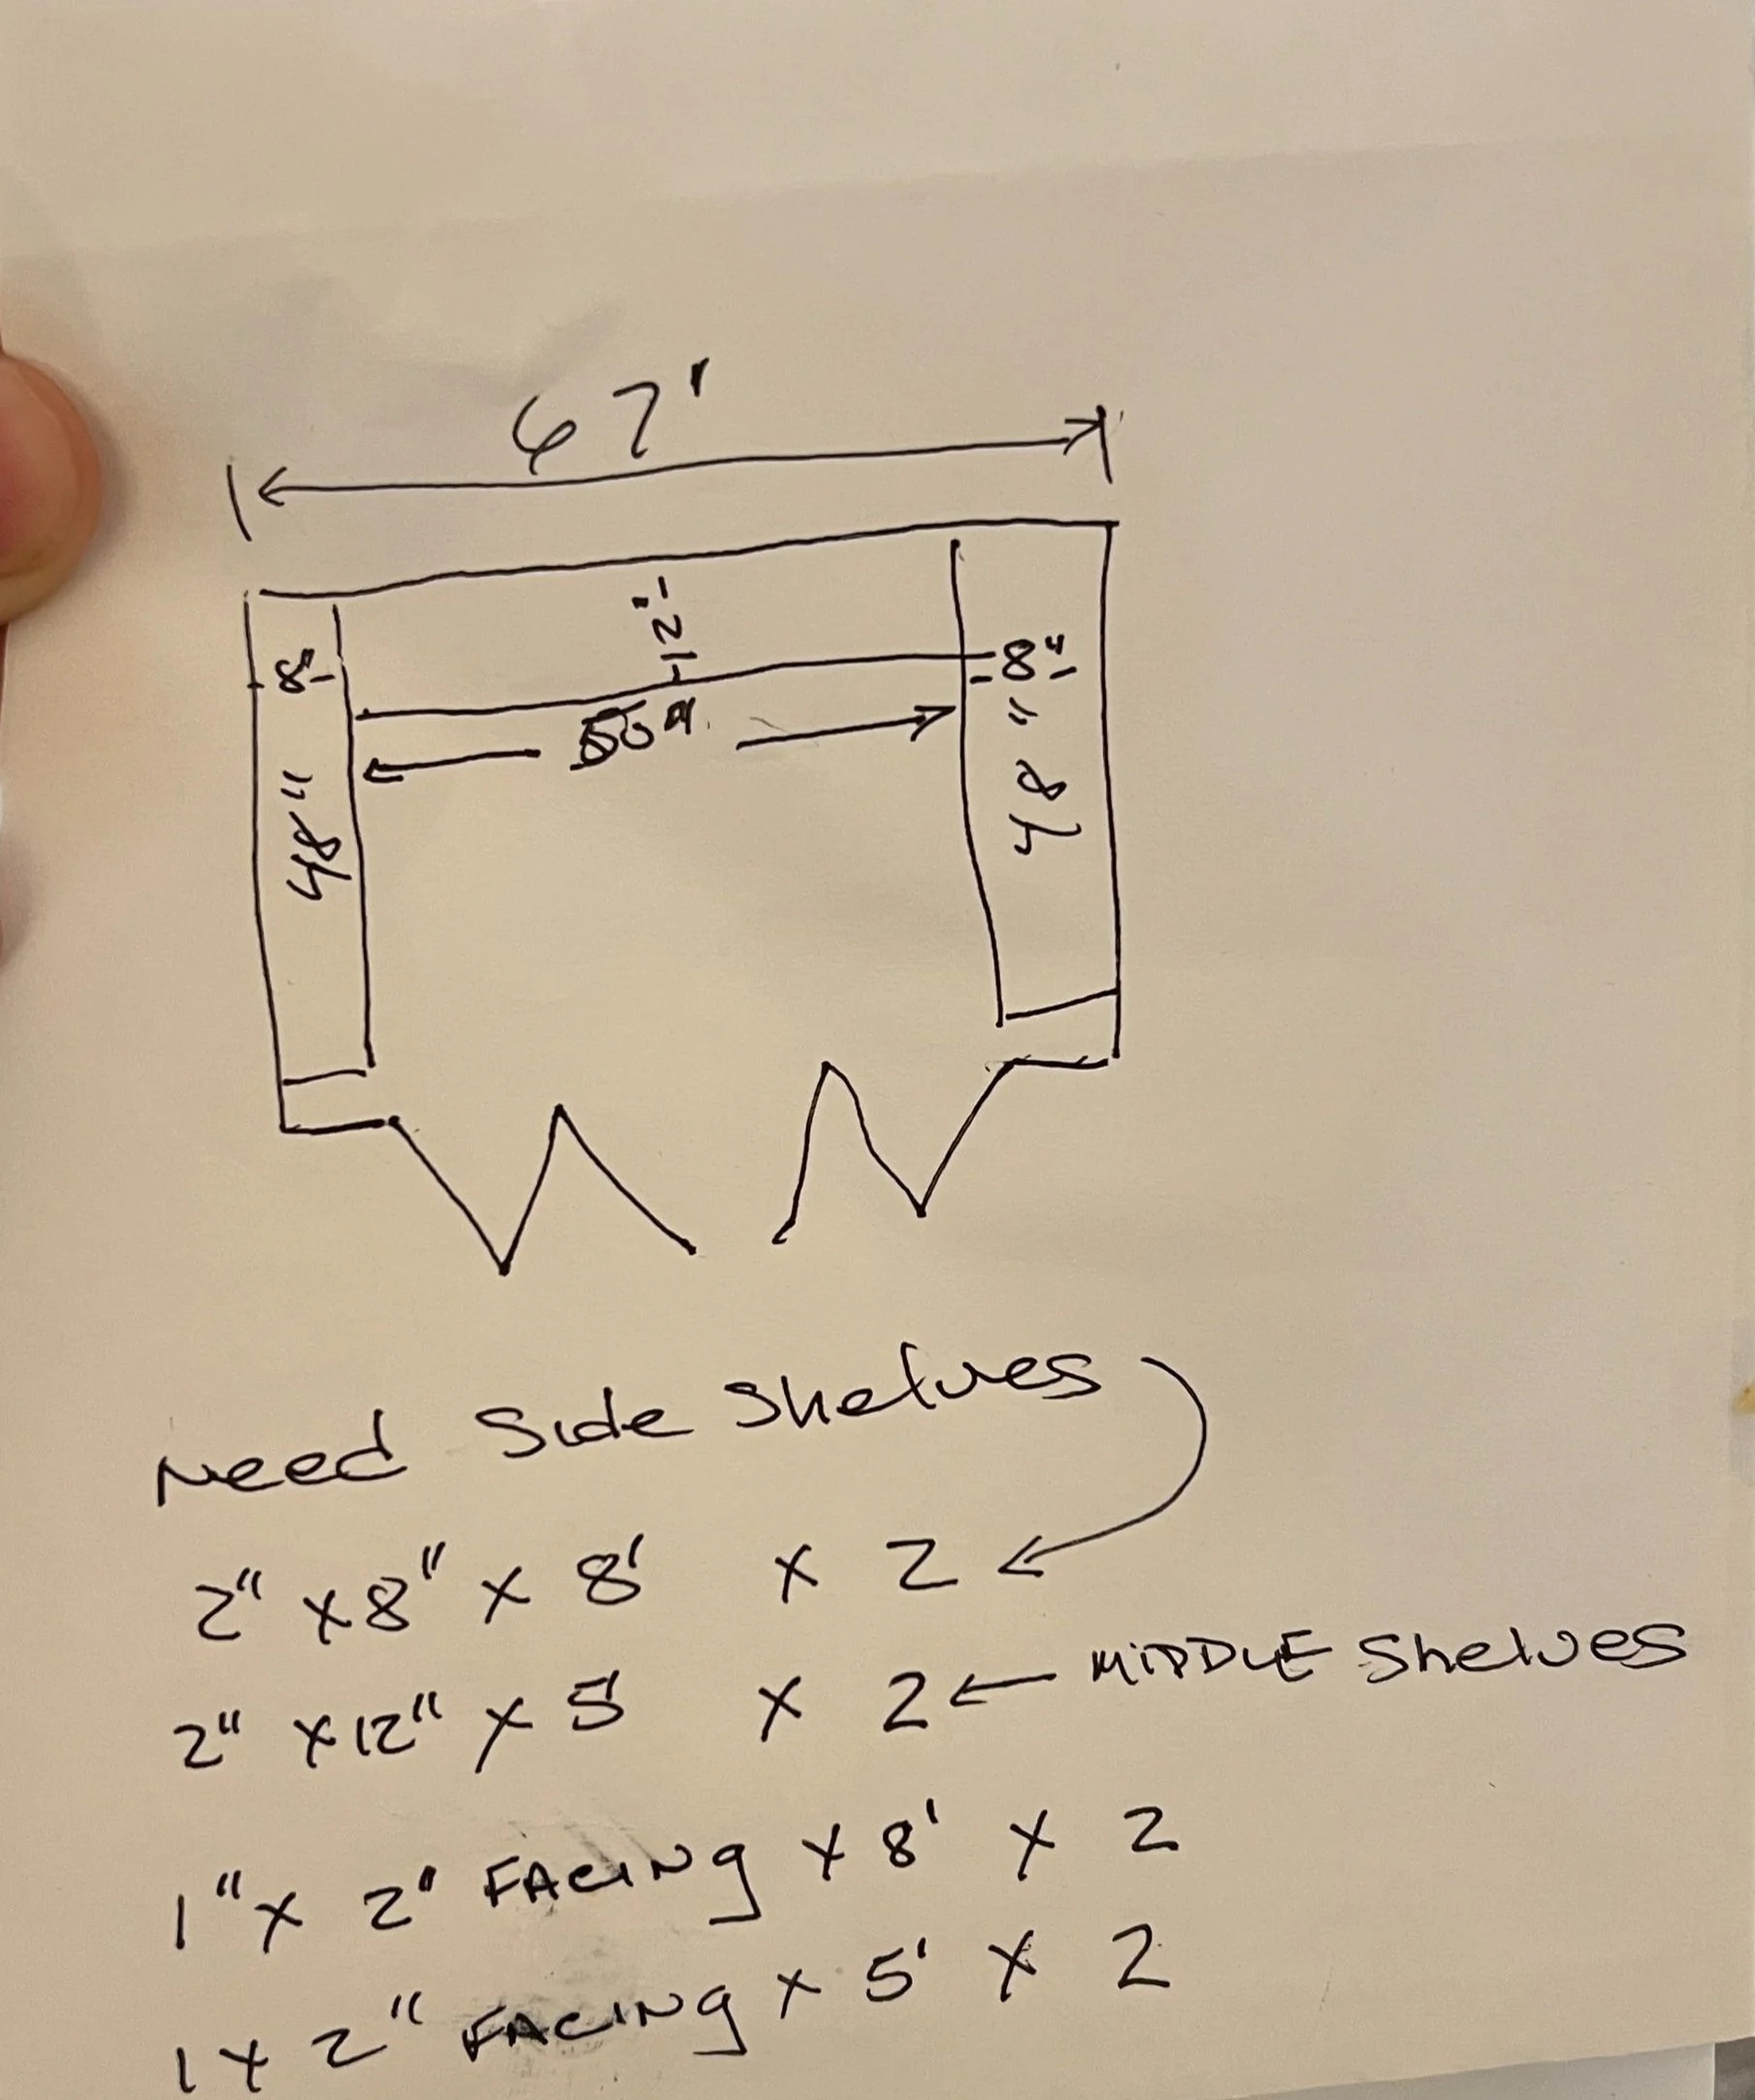 67'
12"
8"
8"
48"
48"
Need Side Shelves
2" x 8" x 8' x 2
2" x 12" x 5' x 2 ← MIDDLE Shelves
1" x 2" FACING x 8' x 2
1 x 2" FACING x 5' x 2